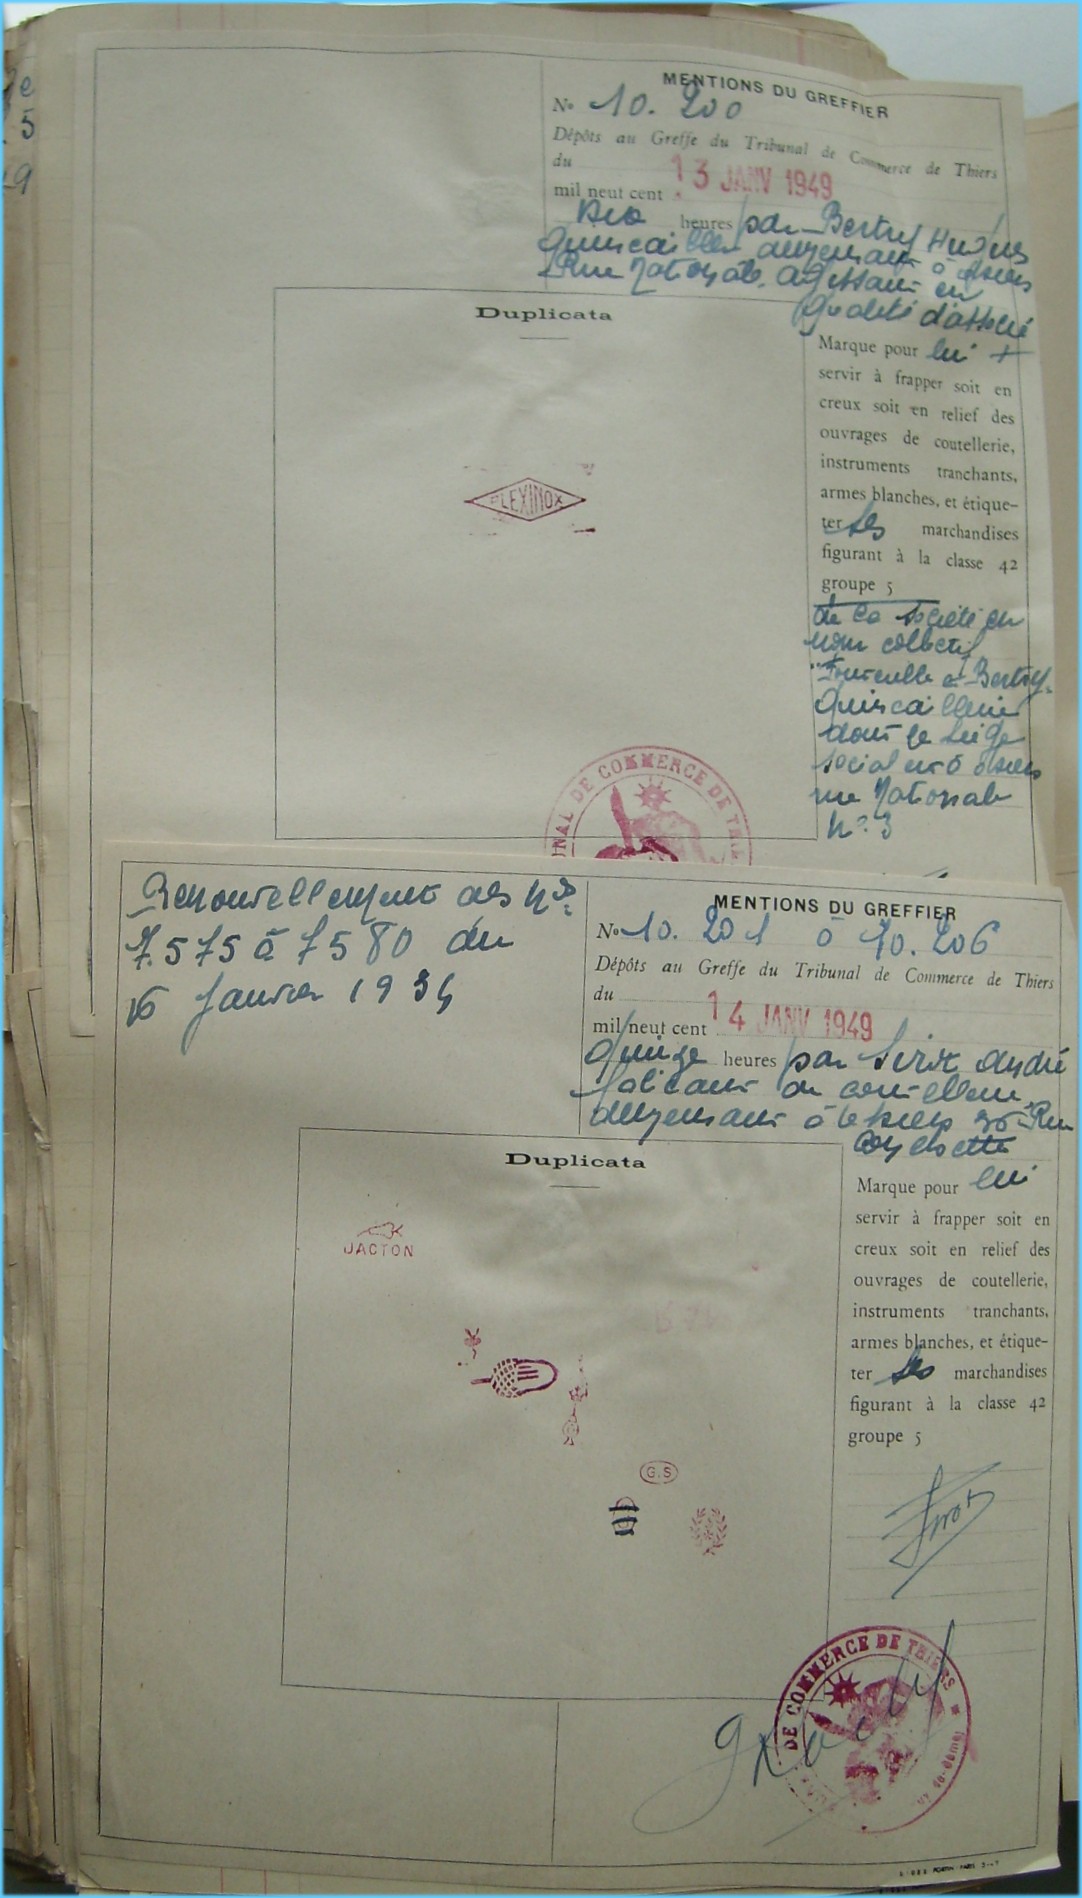 e
5
9
MENTIONS DU GREFFIER
No 10.200
Dépôts au Greffe du Tribunal de Commerce de Thiers
du
mil neuf cent 13 JANV 1949
heures par Hugues
demeurant à
Rue Nationale. agissant en
qualité d'associé
Duplicata
Marque pour lui +
servir à frapper soit en
creux soit en relief des
ouvrages de coutellerie,
instruments tranchants,
armes blanches, et étique-
ter ses marchandises
figurant à la classe 42
groupe 5
de la société en
nom collectif
quincaillerie
dont le siège
social est à
rue Nationale
No 3
PLEXINOX
NAL DE COMMERCE DE THIE
Renouvellement des Nos
7.575 à 7580 du
16 Janvier 1934
MENTIONS DU GREFFIER
No 10.201 à 10.206
Dépôts au Greffe du Tribunal de Commerce de Thiers
du
mil neuf cent 14 JANV 1949
quinze heures par André
fabricant de coutellerie
demeurant à Rue
Duplicata
Marque pour lui
servir à frapper soit en
creux soit en relief des
ouvrages de coutellerie,
instruments tranchants,
armes blanches, et étique-
ter ses marchandises
figurant à la classe 42
groupe 5
JACTON
G.S
DE COMMERCE DE THIERS